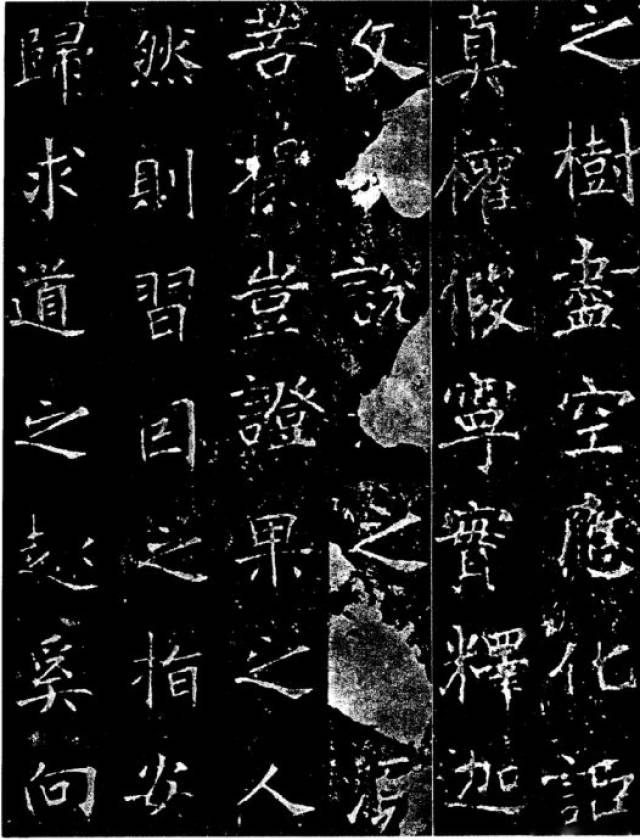 之樹盡空應化詎
真權假寧實釋迦
文說之須
菩提豈證果之人
然則習因之指安
歸求道之趣奚向